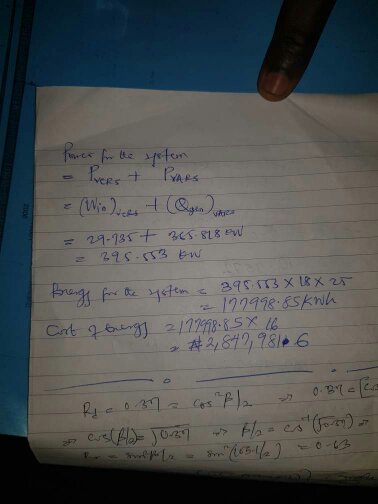 Power for the system
= P_VCRS + P_VARS
= (Win)_VCRS + (Qgen)_VARS
= 29.735 + 365.818 kW
= 395.553 kW
Energy for the system = 395.553 × 18 × 25
= 177998.85 kWh
Cost of Energy = 177998.85 × 16
= ₦2,847,981.6
= 0.37 = cos²β/2 ⇒ 0.37 =
⇒ cos(β/2) = √0.37 ⇒ β/2 = cos⁻¹(√0.37) ⇒
= 0.63